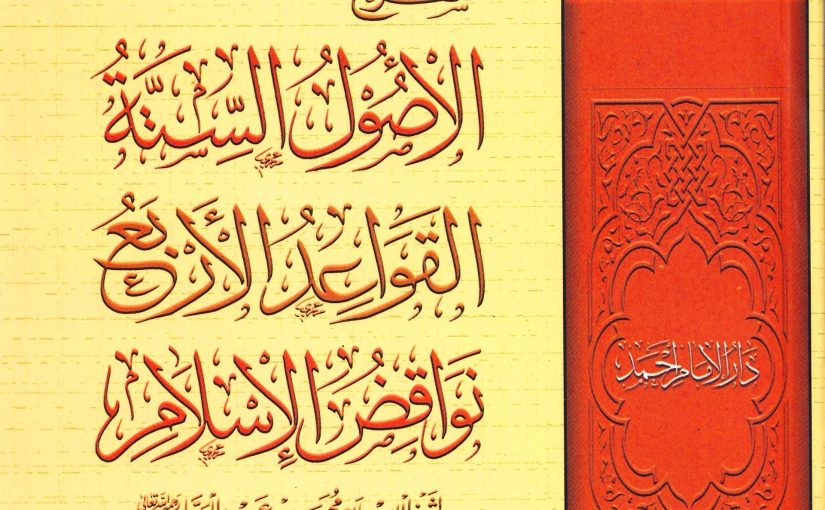 شرح
الْأُصُولُ السِّتَّةُ
القَوَاعِدُ الأَرْبَعُ
نَوَاقِضُ الإِسْلَامِ
دَارُ الإِمَام أَحْمَد